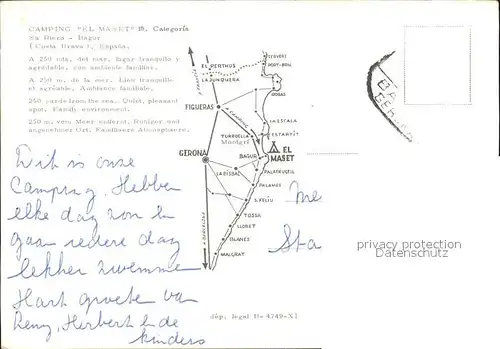 CAMPING "EL MASET" 1ª. Categoría
Sa Riera - Bagur
( Costa Brava ), España.
A 250 mts. del mar, lugar tranquilo y
agradable, con ambiente familiar.
A 250 m. de la mer. Lieu tranquille
et agréable, Ambiance familiale.
250 yards from the sea. Quiet, pleasant
spot. Family environment.
250 m. vom Meer enfernt. Ruhiger und
angenehmer Ort. Familiaere Atmosphaere.
CERVERE
PORT-BOU
EL PERTHUS
LA JUNQUERA
ROSAS
FIGUERAS
LA ESCALA
ESTARTIT
TORROELLA
Montgrí
GERONA
BAGUR
EL MASET
PALAFRUGELL
LA BISBAL
PALAMÓS
S. FELIU
TOSSA
LLORET
BLANES
MALGRAT
A BARCELONA
Dit is onze
Camping. Hebben
elke dag zon en
gaan iedere dag
lekker zwemmen
Hart groeten van
Remy, Herbert en de
kinders
Me
Sta
dép. legal B- 4749-XI
privacy protection
Datenschutz